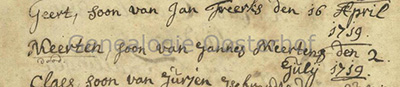 Geert, soon van Jan Freerks den 16 April
1719.
Meerten soon van Jannes Meertens den 2.
dood. July 1719.
Claes, soon van Jurjen
Genealogie Oosterhof